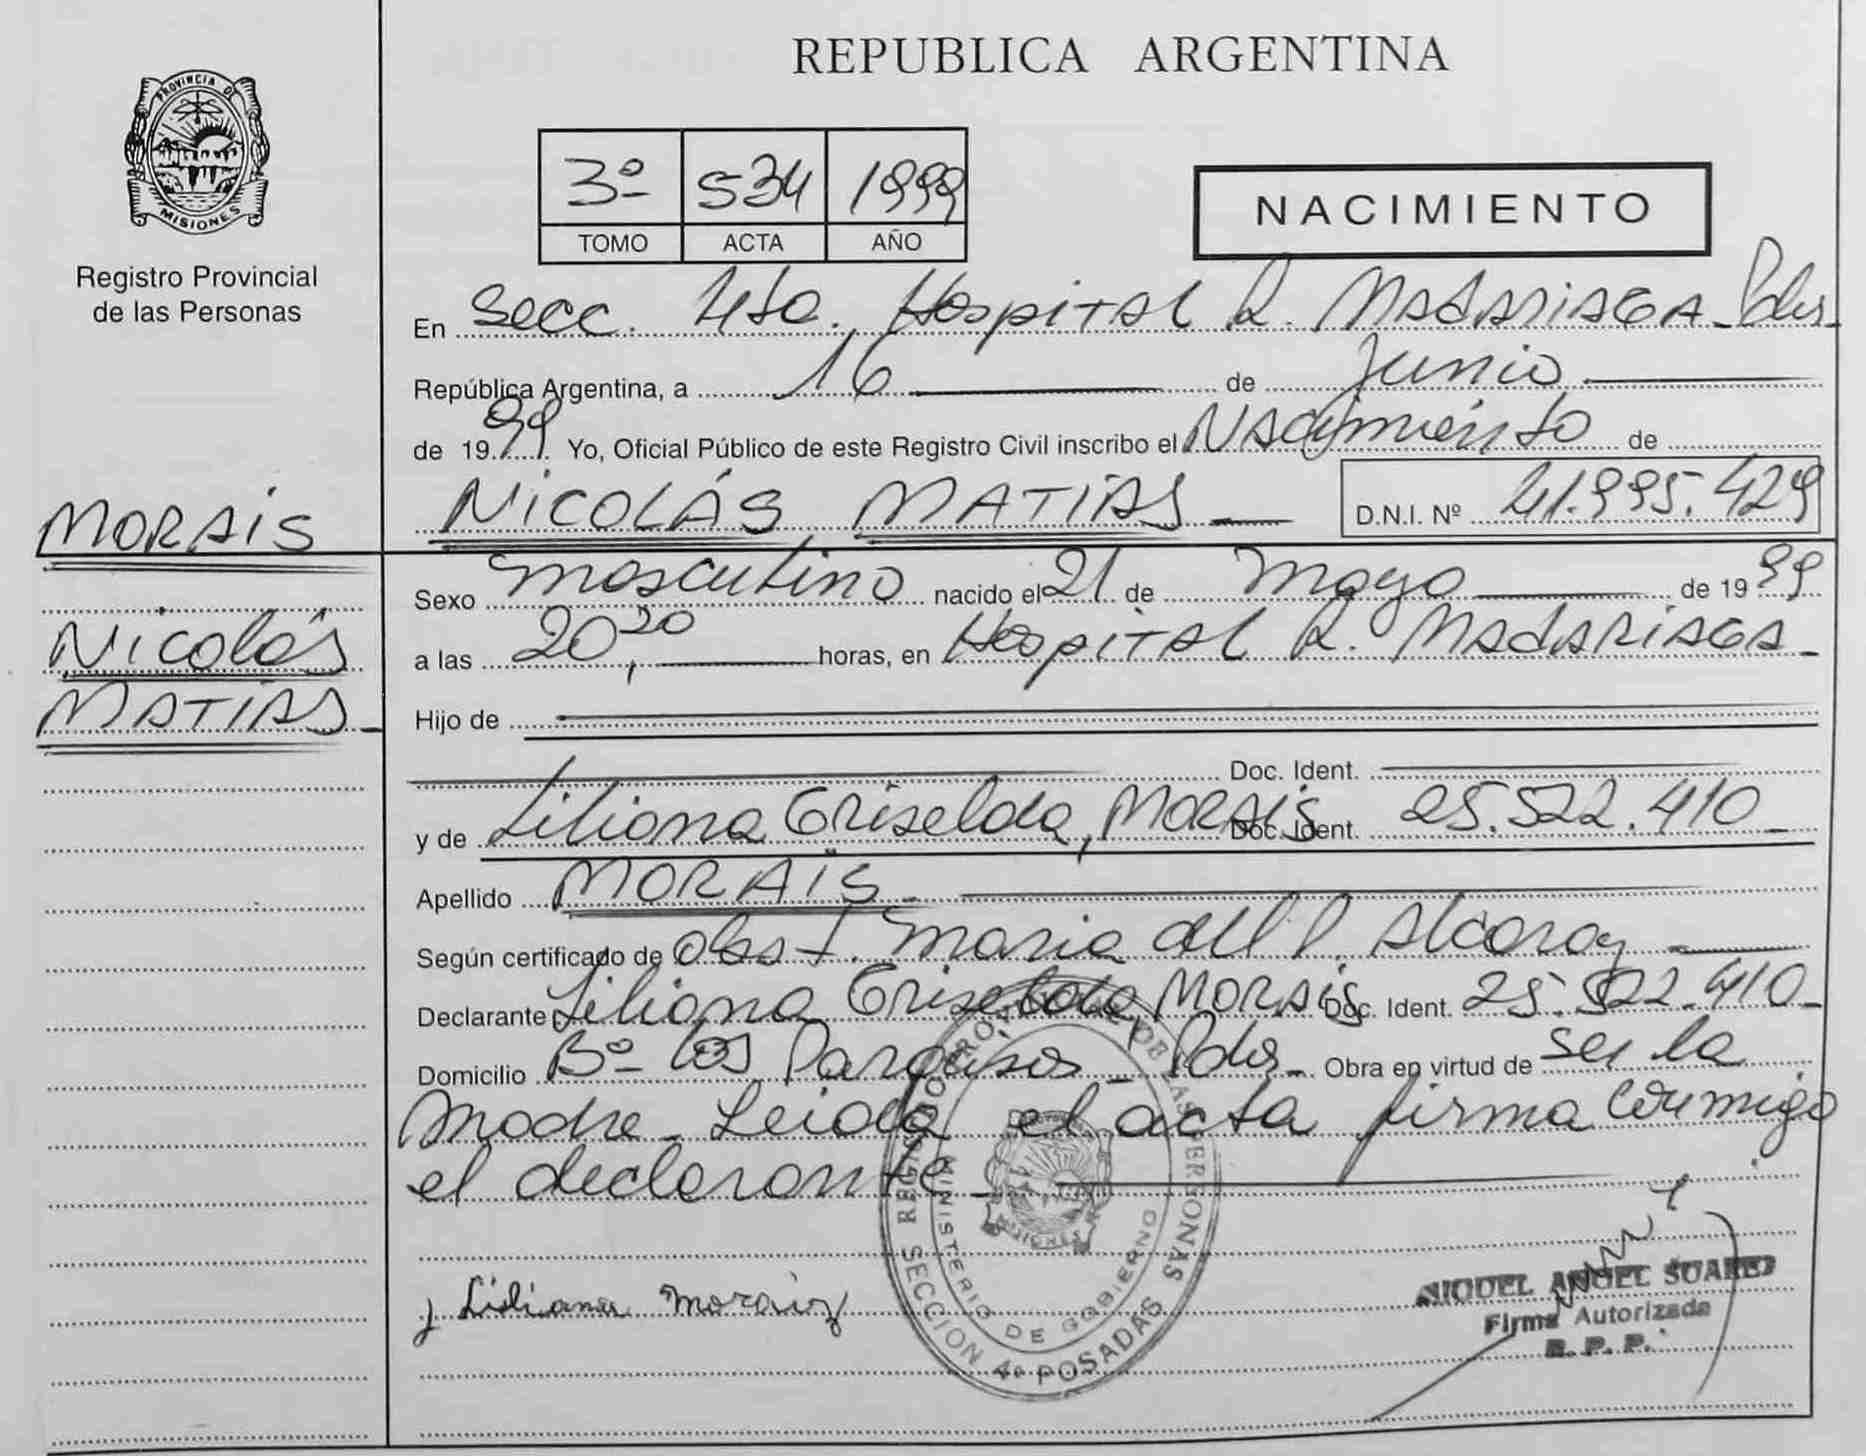 REPUBLICA ARGENTINA
PROVINCIA DE
MISIONES
Registro Provincial
de las Personas
3º 534 1999
TOMO ACTA AÑO
NACIMIENTO
En Secc. 4ta. Hospital R. Madariaga - Pdas -
República Argentina, a 16 de Junio
de 1999 Yo, Oficial Público de este Registro Civil inscribo el Nacimiento de
NICOLÁS MATIAS D.N.I. Nº 41.995.429
MORAIS
Nicolás
MATIAS
Sexo masculino nacido el 21 de Mayo de 1999
a las 20,20 horas, en Hospital R. Madariaga
Hijo de
Doc. Ident.
y de Liliana Griselda, MORAIS Doc. Ident. 25.522.410
Apellido MORAIS
Según certificado de Obst. Maria del P. Alcaraz
Declarante Liliana Griselda, MORAIS Doc. Ident. 25.522.410
Domicilio Bº Los Paraísos - Pdas - Obra en virtud de ser la
Madre - Leida el acta firma conmigo
el declarante
Liliana Moraiz
MIGUEL ANGEL SUAREZ
Firma Autorizada
R. P. P.
REGISTRO PROVINCIAL DE LAS PERSONAS
MINISTERIO DE GOBIERNO
MISIONES
SECCION 4ª POSADAS